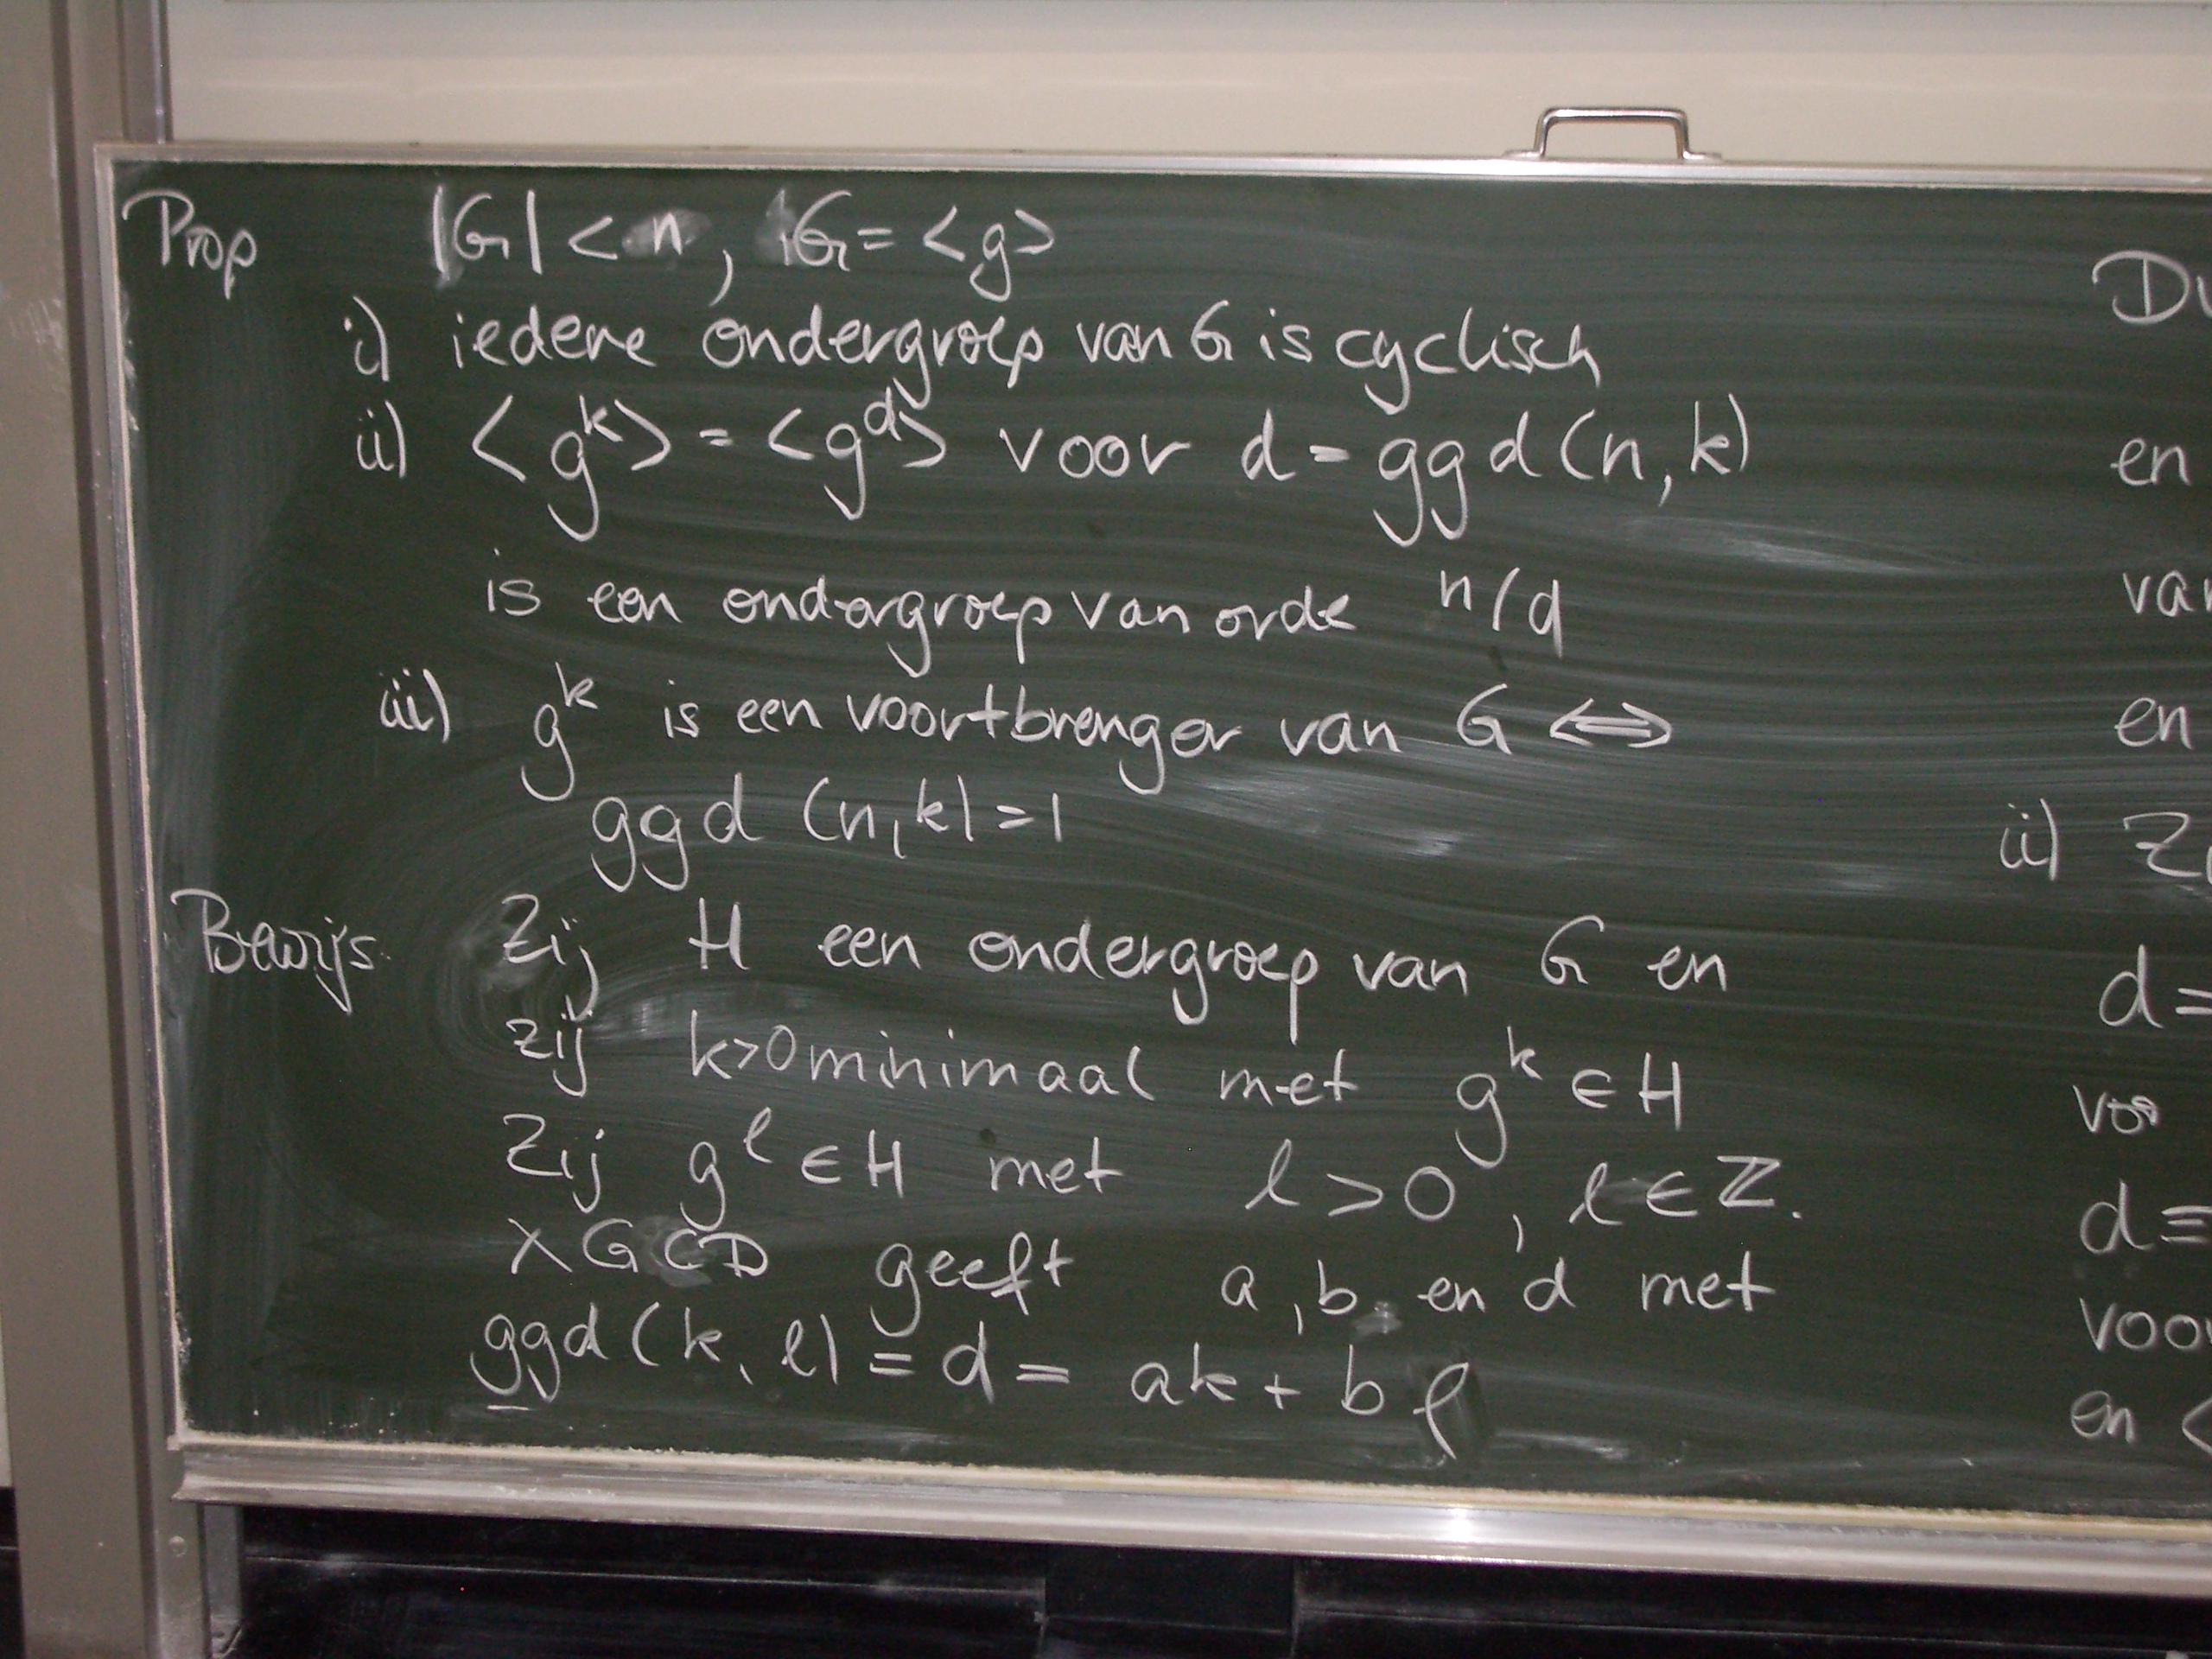 Prop |G| < n, G = <g>
i) iedere ondergroep van G is cyclisch
ii) <g^k> = <g^d> voor d = ggd (n, k)
is een ondergroep van orde n/d
iii) g^k is een voortbrenger van G ⇔
ggd (n, k) = 1
Bewijs. Zij H een ondergroep van G en
zij k>0 minimaal met g^k ∈ H
Zij g^ℓ ∈ H met ℓ > 0, ℓ ∈ ℤ.
XGCD geeft a, b en d met
ggd (k, ℓ) = d = ak + bℓ
en
en
ii)
d =
d ≡
en <